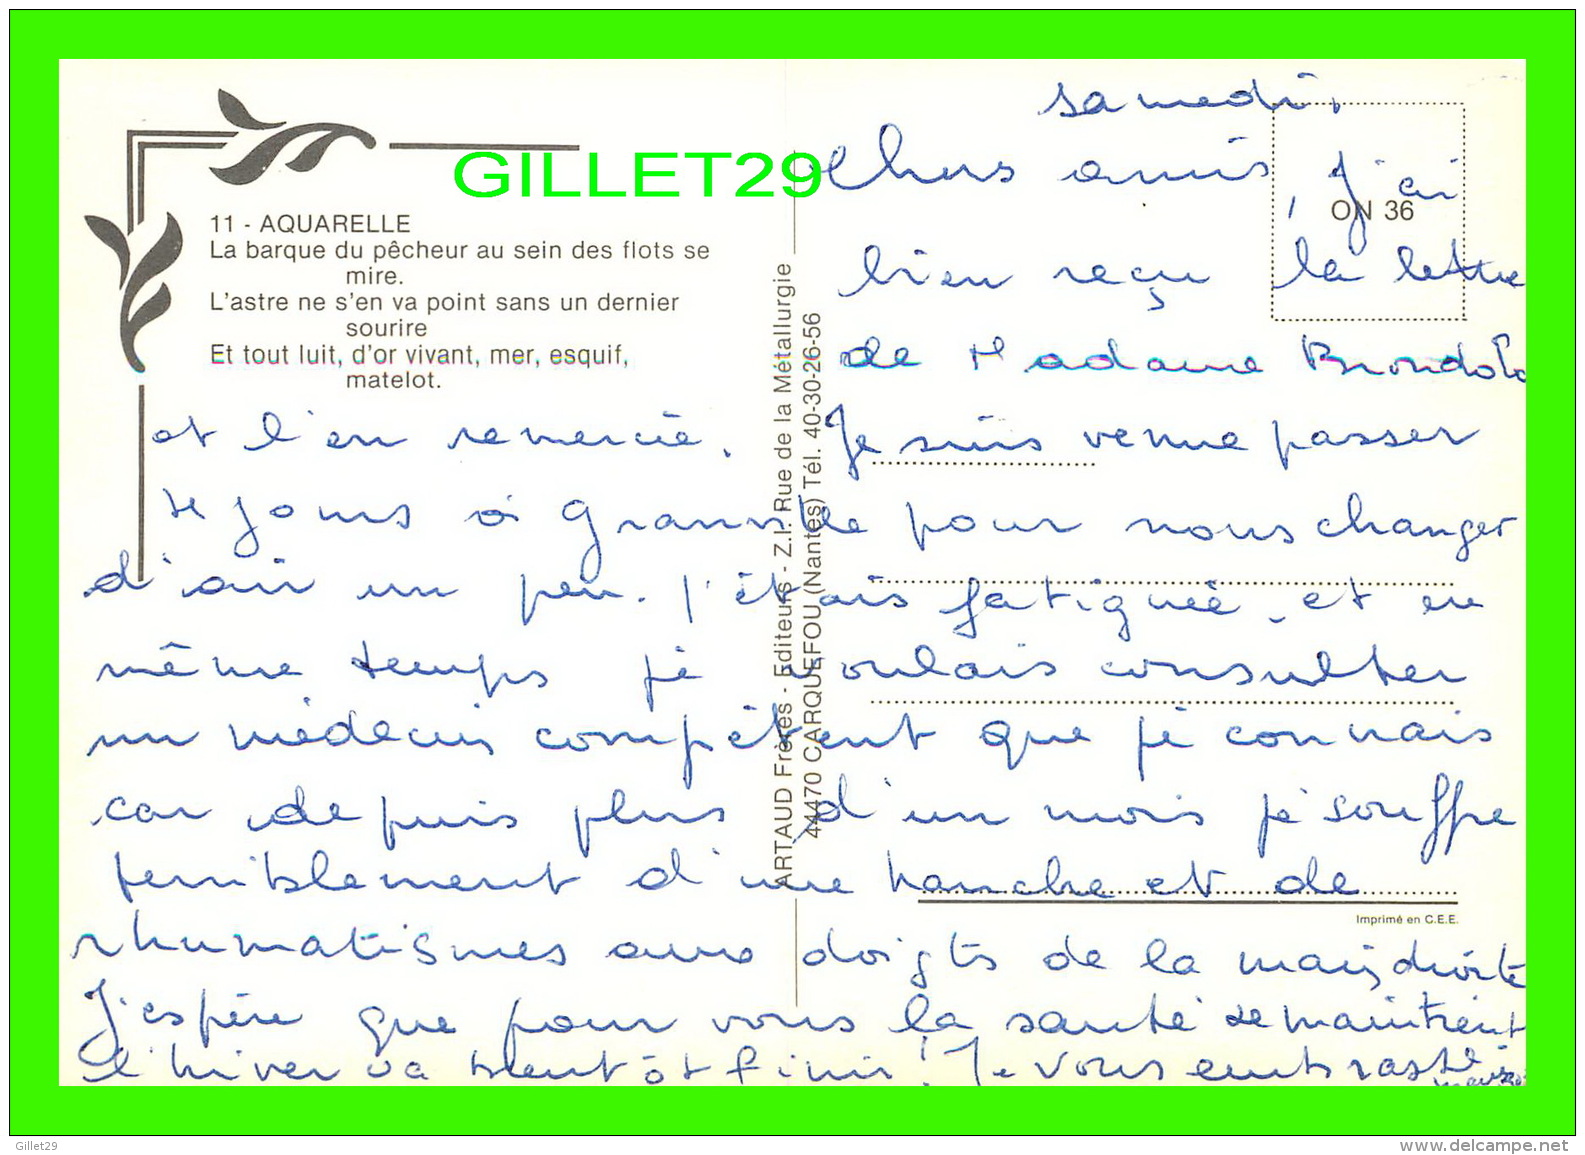 GILLET29
11 - AQUARELLE
La barque du pêcheur au sein des flots se
mire.
L'astre ne s'en va point sans un dernier
sourire
Et tout luit, d'or vivant, mer, esquif,
matelot.
ARTAUD Frères - Editeurs - Z.I. Rue de la Métallurgie
44470 CARQUEFOU (Nantes) Tél. 40-30-26-56
ON 36
samedi.
Chers amis, j'ai
bien reçu la lettre
de Madame
et l'en remercie. Je suis venue passer
jours à Granville pour nous changer
d'air un peu. J'étais fatiguée et en
même temps je voulais consulter
un médecin compétent que je connais
car depuis plus d'un mois je souffre
terriblement d'une hanche et de
rhumatismes aux doigts de la main droite
J'espère que pour vous la santé se maintient
l'hiver va bientôt finir! Je vous embrasse
Imprimé en C.E.E.
Gillet29
www.delcampe.net